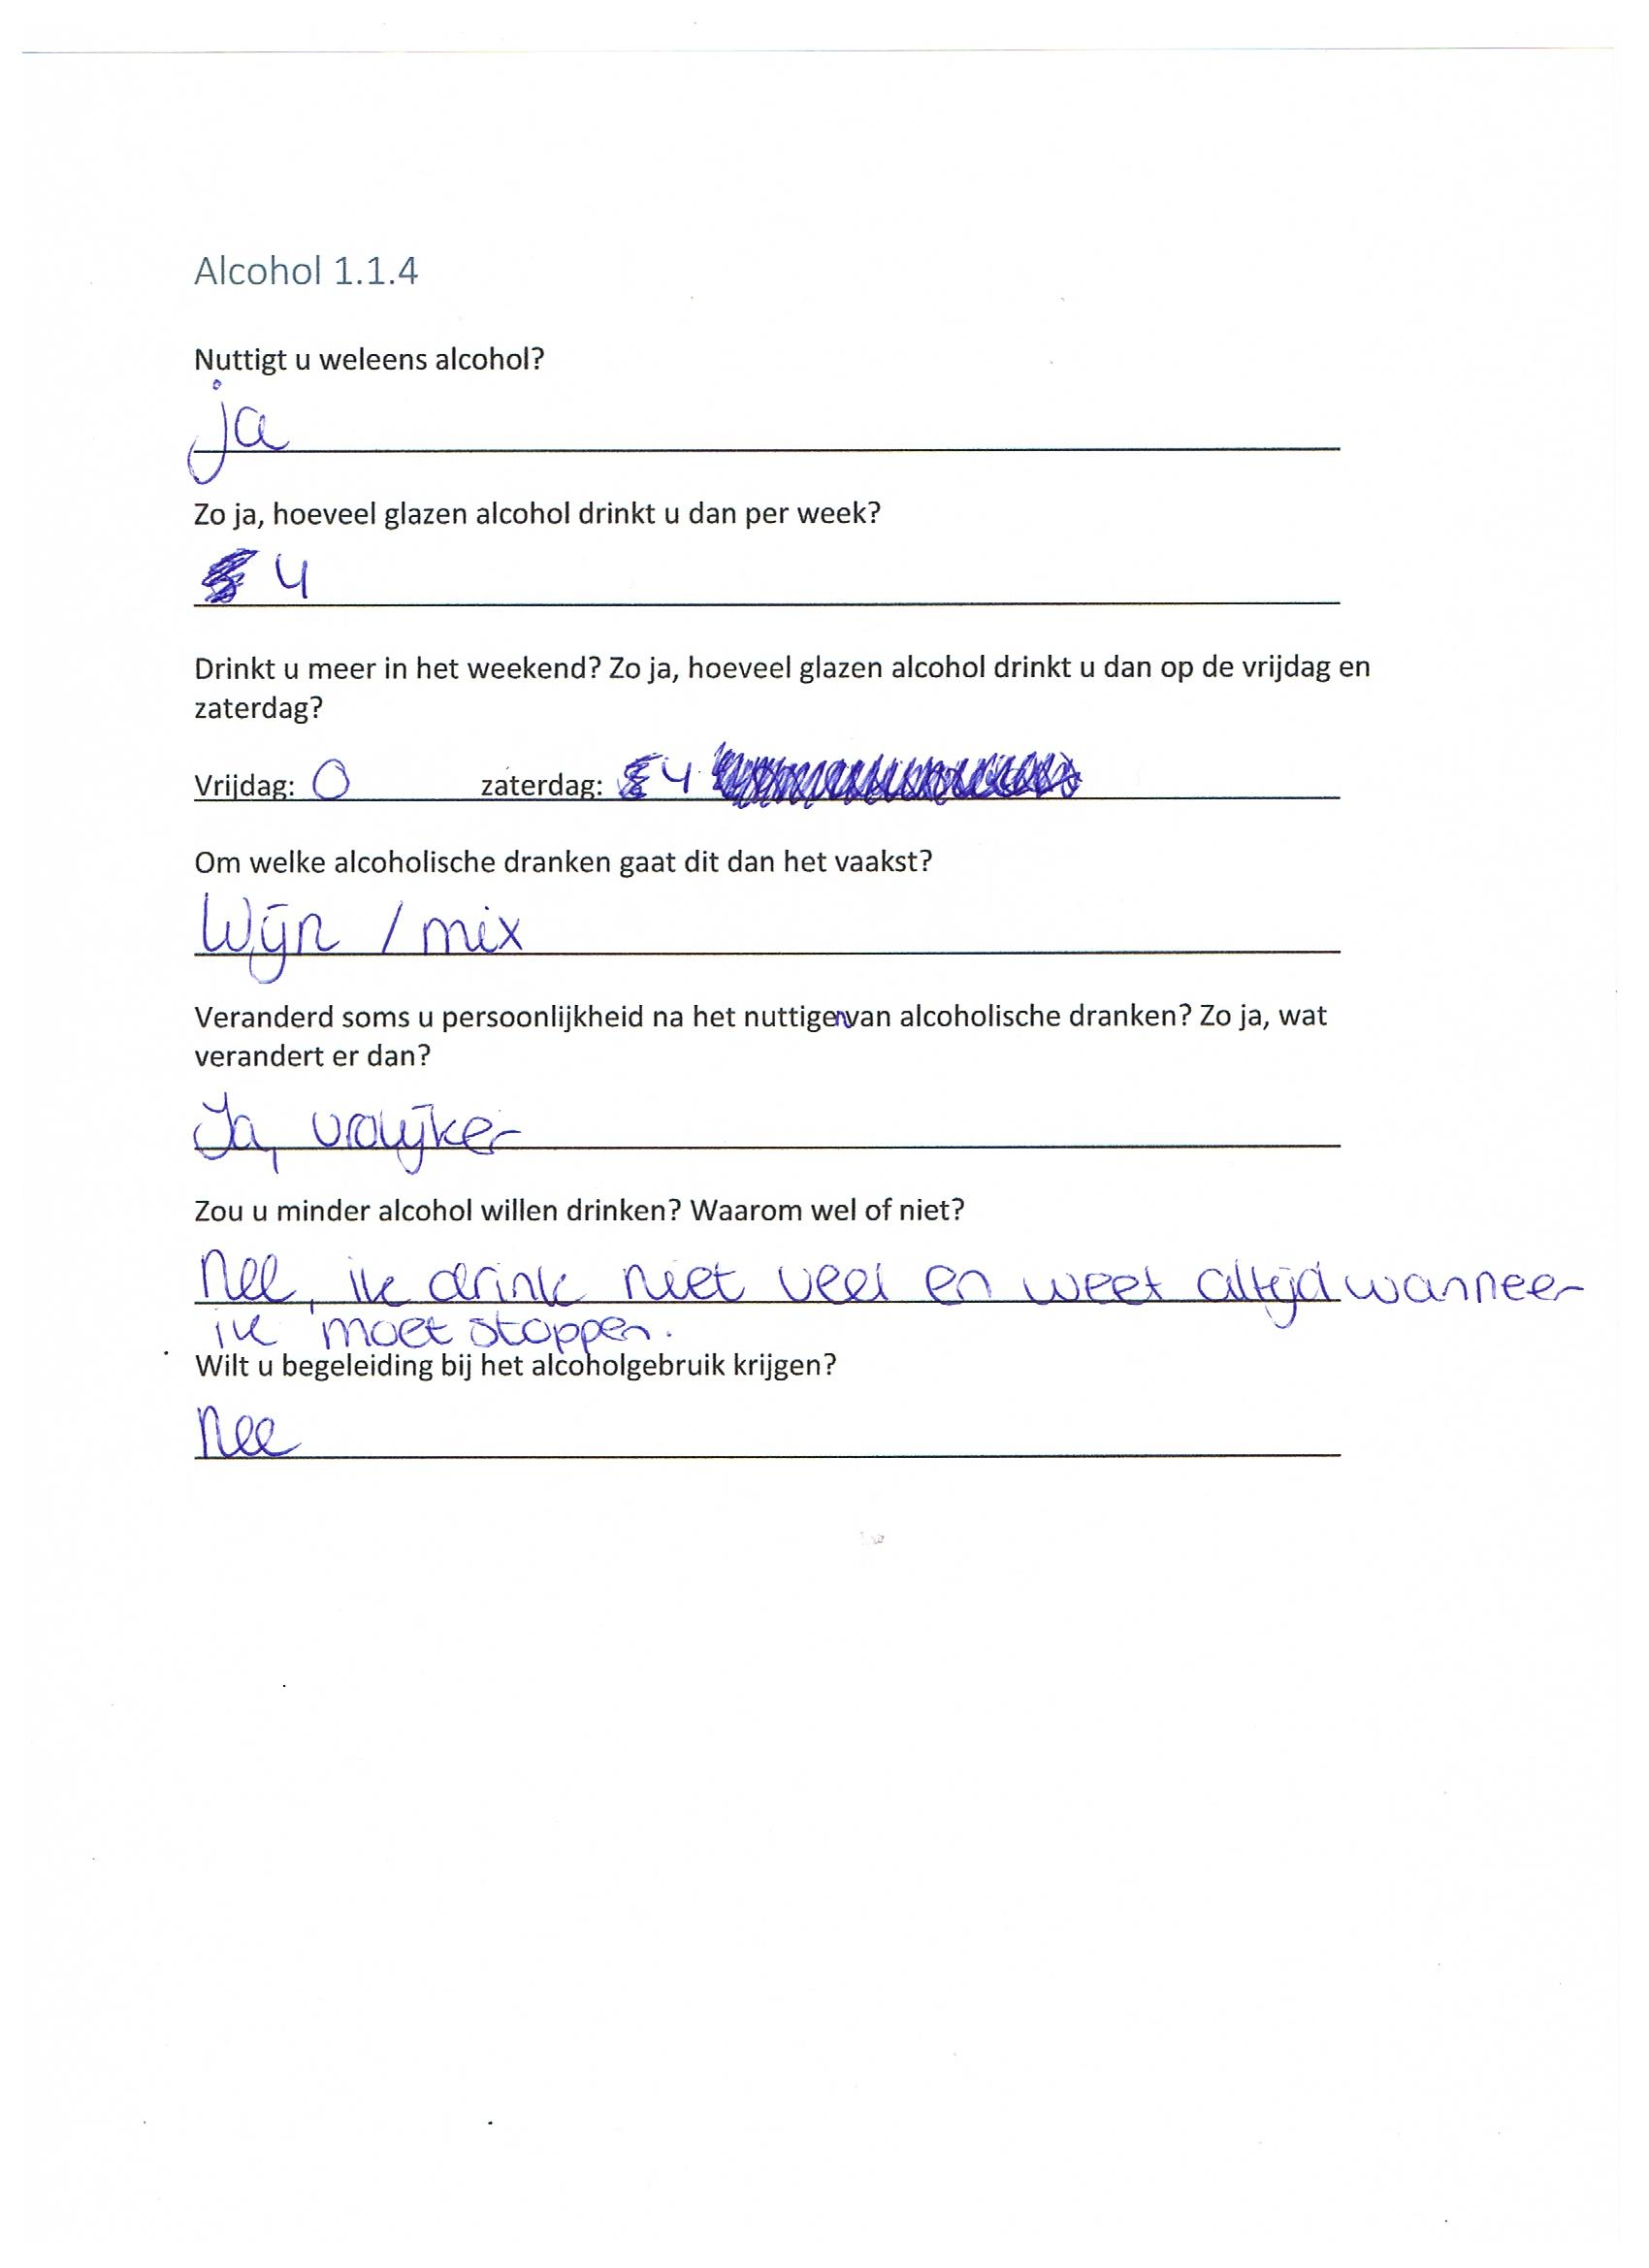 Alcohol 1.1.4
Nuttigt u weleens alcohol?
ja
Zo ja, hoeveel glazen alcohol drinkt u dan per week?
4
Drinkt u meer in het weekend? Zo ja, hoeveel glazen alcohol drinkt u dan op de vrijdag en
zaterdag?
Vrijdag: 0 zaterdag: 4
Om welke alcoholische dranken gaat dit dan het vaakst?
Wijn / mix
Veranderd soms u persoonlijkheid na het nuttigen van alcoholische dranken? Zo ja, wat
verandert er dan?
Ja, vrolijker
Zou u minder alcohol willen drinken? Waarom wel of niet?
Nee, ik drink niet veel en weet altijd wanneer
ik moet stoppen.
Wilt u begeleiding bij het alcoholgebruik krijgen?
Nee